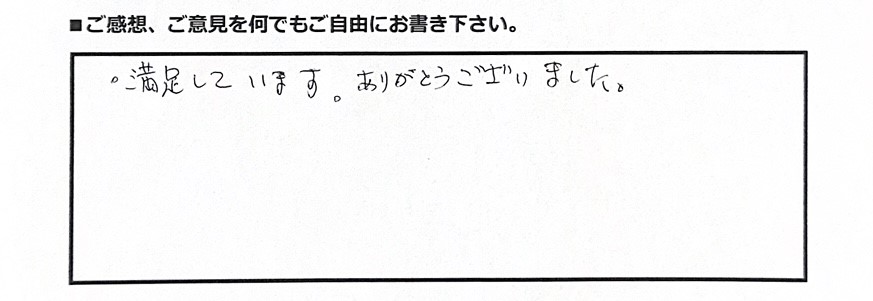 ■ご感想、ご意見を何でもご自由にお書き下さい。
。満足しています。ありがとうございました。